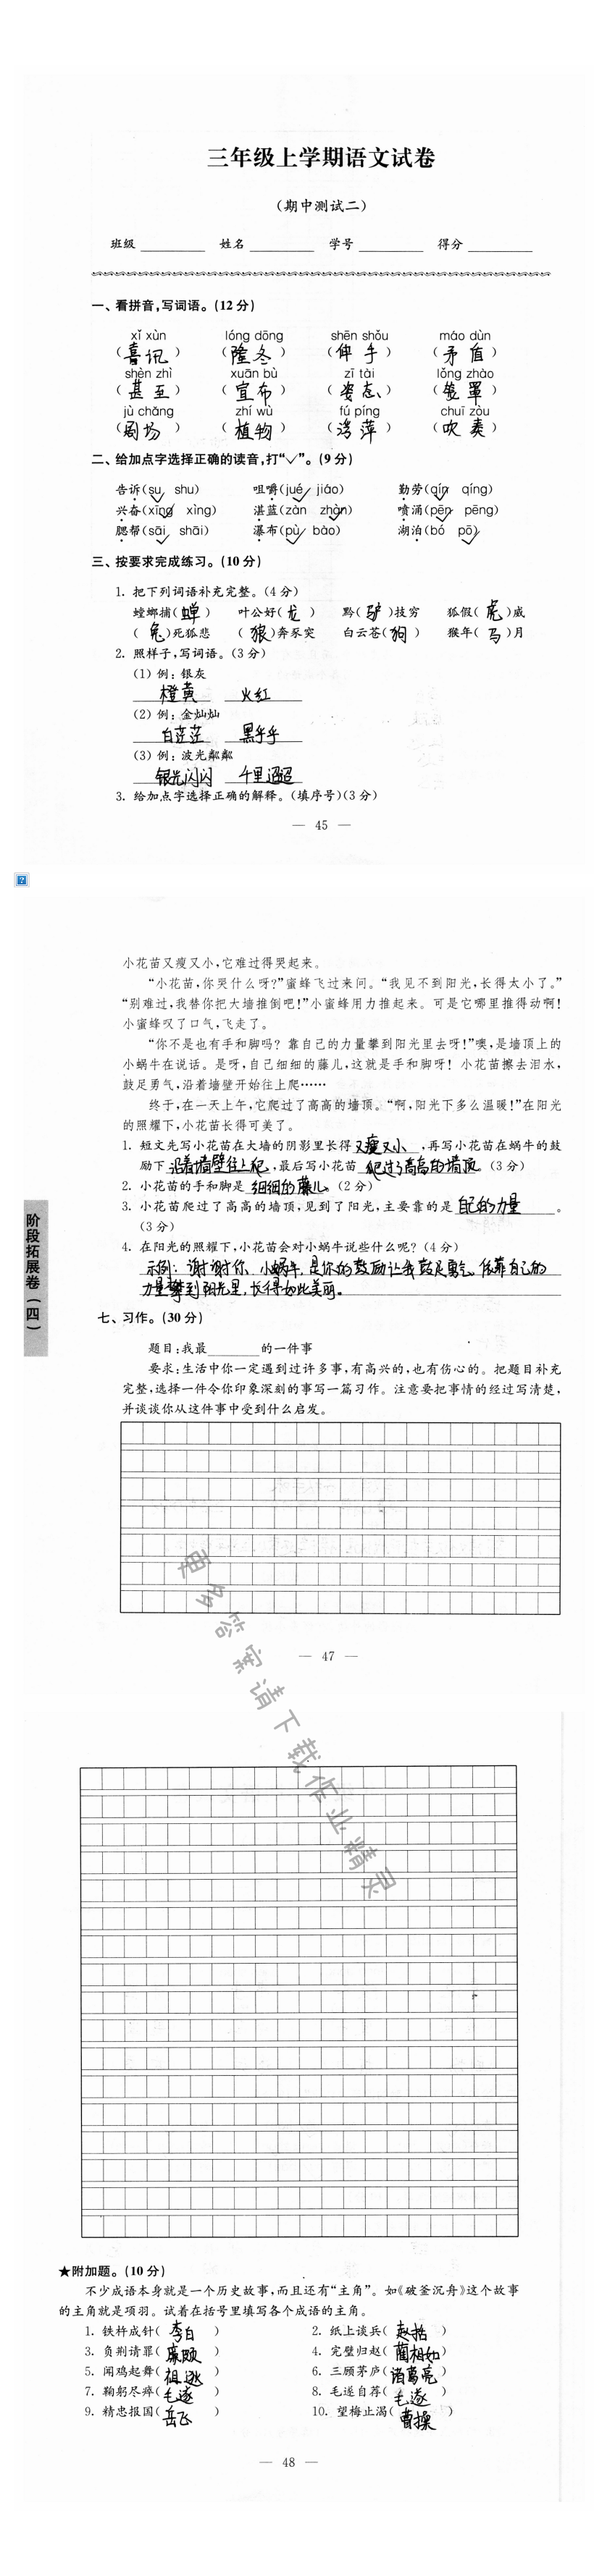 三年级上学期语文试卷
(期中测试二)
班级 姓名 学号 得分
一、看拼音,写词语。(12 分)
xǐ xùn lóng dōng shēn shǒu máo dùn
(喜讯) (隆冬) (伸手) (矛盾)
shèn zhì xuān bù zī tài lǒng zhào
(甚至) (宣布) (姿态) (笼罩)
jù chǎng zhí wù fú píng chuī zòu
(剧场) (植物) (浮萍) (吹奏)
二、给加点字选择正确的读音,打“✓”。(9 分)
告诉(su shu) 咀嚼(jué jiáo) 勤劳(qín qíng)
兴奋(xīng xìng) 湛蓝(zàn zhàn) 喷涌(pēn pēng)
腮帮(sāi shāi) 瀑布(pù bào) 湖泊(bó pō)
三、按要求完成练习。(10 分)
1. 把下列词语补充完整。(4 分)
螳螂捕(蝉) 叶公好(龙) 黔(驴)技穷 狐假(虎)威
(兔)死狐悲 (狼)奔豕突 白云苍(狗) 猴年(马)月
2. 照样子,写词语。(3 分)
(1) 例: 银灰
橙黄 火红
(2) 例: 金灿灿
白茫茫 黑乎乎
(3) 例: 波光粼粼
银光闪闪 千里迢迢
3. 给加点字选择正确的解释。(填序号)(3 分)
— 45 —
小花苗又瘦又小,它难过得哭起来。
“小花苗,你哭什么呀?”蜜蜂飞过来问。“我见不到阳光,长得太小了。”
“别难过,我替你把大墙推倒吧!”小蜜蜂用力推起来。可是它哪里推得动啊!
小蜜蜂叹了口气,飞走了。
“你不是也有手和脚吗? 靠自己的力量攀到阳光里去呀!”噢,是墙顶上的
小蜗牛在说话。是呀,自己细细的藤儿,这就是手和脚呀! 小花苗擦去泪水,
鼓足勇气,沿着墙壁开始往上爬……
终于,在一天上午,它爬过了高高的墙顶。“啊,阳光下多么温暖!”在阳光
的照耀下,小花苗长得可美了。
1. 短文先写小花苗在大墙的阴影里长得 又瘦又小 ,再写小花苗在蜗牛的鼓
励下 沿着墙壁往上爬 ,最后写小花苗 爬过了高高的墙顶 。(3 分)
2. 小花苗的手和脚是 细细的藤儿 。(2 分)
3. 小花苗爬过了高高的墙顶,见到了阳光,主要靠的是 自己的力量 。
(3 分)
4. 在阳光的照耀下,小花苗会对小蜗牛说些什么呢? (4 分)
示例: 谢谢你、小蜗牛,是你的鼓励让我鼓足勇气,依靠自己的
力量攀到阳光里,长得如此美丽。
阶段拓展卷(四)
七、习作。(30 分)
题目:我最 的一件事
要求:生活中你一定遇到过许多事,有高兴的,也有伤心的。把题目补充
完整,选择一件令你印象深刻的事写一篇习作。注意要把事情的经过写清楚,
并谈谈你从这件事中受到什么启发。
— 47 —
更多答案请下载作业精灵
★附加题。(10 分)
不少成语本身就是一个历史故事,而且还有“主角”。如《破釜沉舟》这个故事
的主角就是项羽。试着在括号里填写各个成语的主角。
1. 铁杵成针(李白) 2. 纸上谈兵(赵括)
3. 负荆请罪(廉颇) 4. 完璧归赵(蔺相如)
5. 闻鸡起舞(祖逖) 6. 三顾茅庐(诸葛亮)
7. 鞠躬尽瘁(毛遂) 8. 毛遂自荐(毛遂)
9. 精忠报国(岳飞) 10. 望梅止渴(曹操)
— 48 —